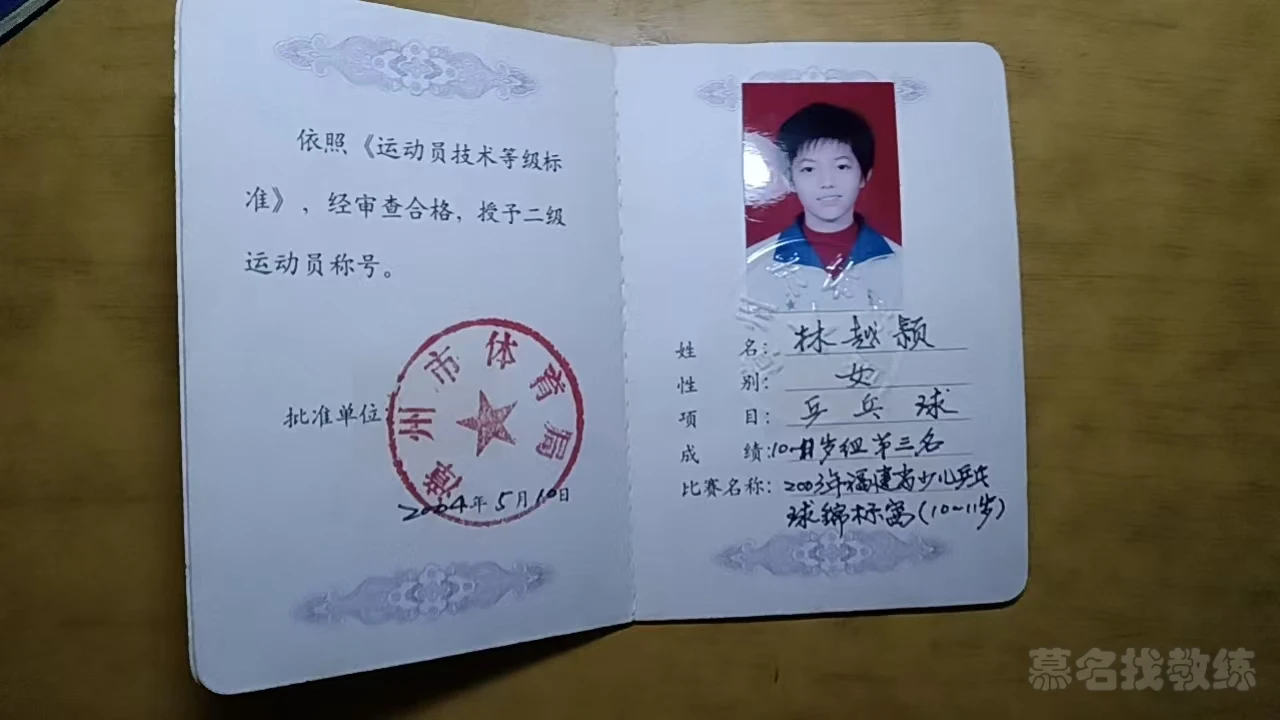 依照《运动员技术等级标
准》，经审查合格，授予二级
运动员称号。
批准单位：
漳州市体育局
2004年5月10日
姓 名：林越颖
性 别：女
项 目：乒乓球
成 绩：10-11岁组第三名
比赛名称：2003年福建省少儿乒乓
球锦标赛(10~11岁)
慕名找教练